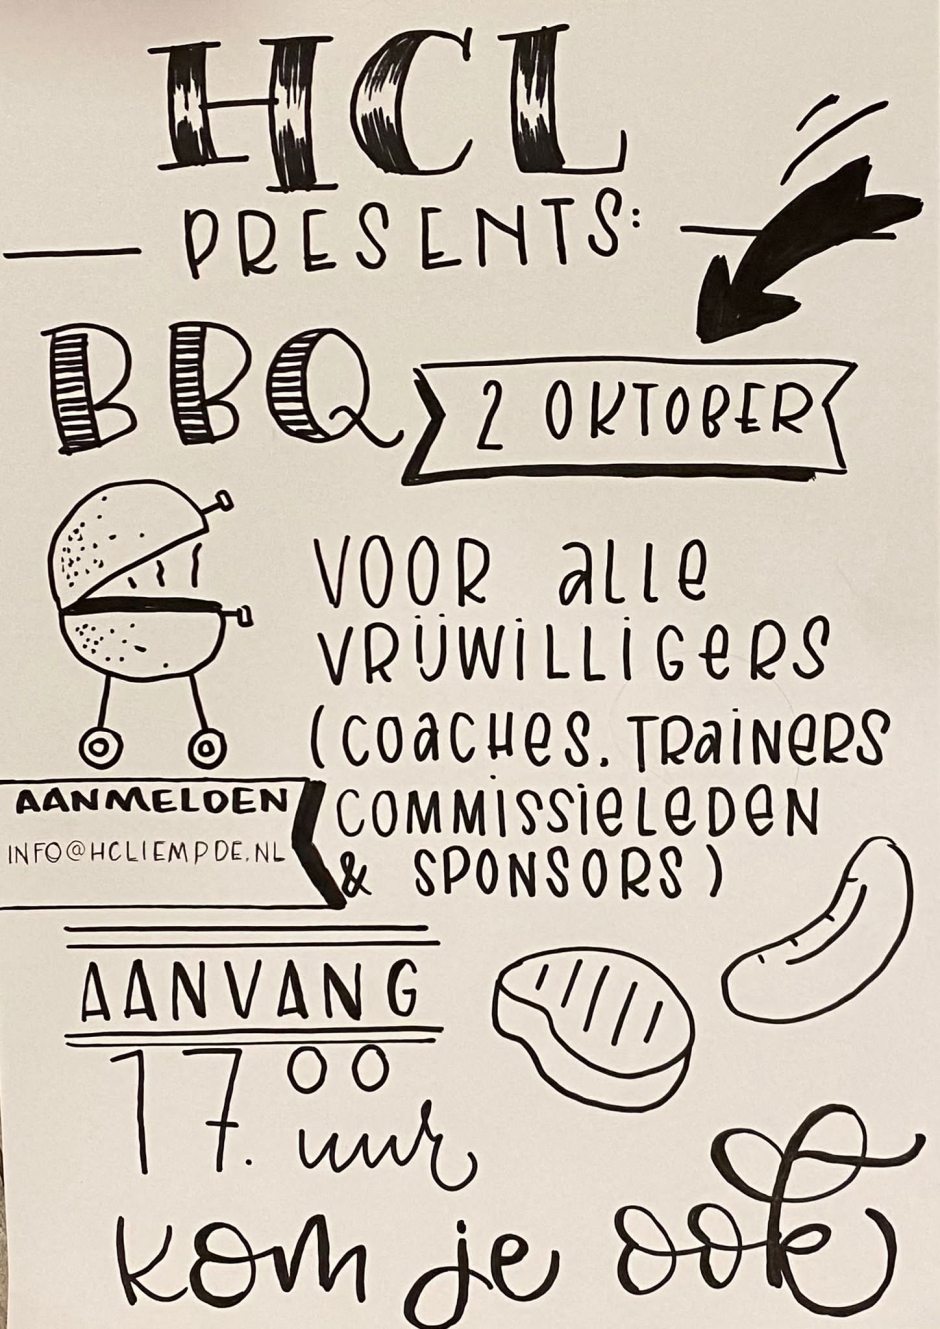 HCL
PRESENTS:
BBQ
2 OKTOBER
VOOR alle
VRIJWILLIGERS
(COACHES. TRAINERS
COMMISSIELEDEN
& SPONSORS)
AANMELDEN
INFO@HCLIEMPDE.NL
AANVANG
17.00 uur
kom je ook